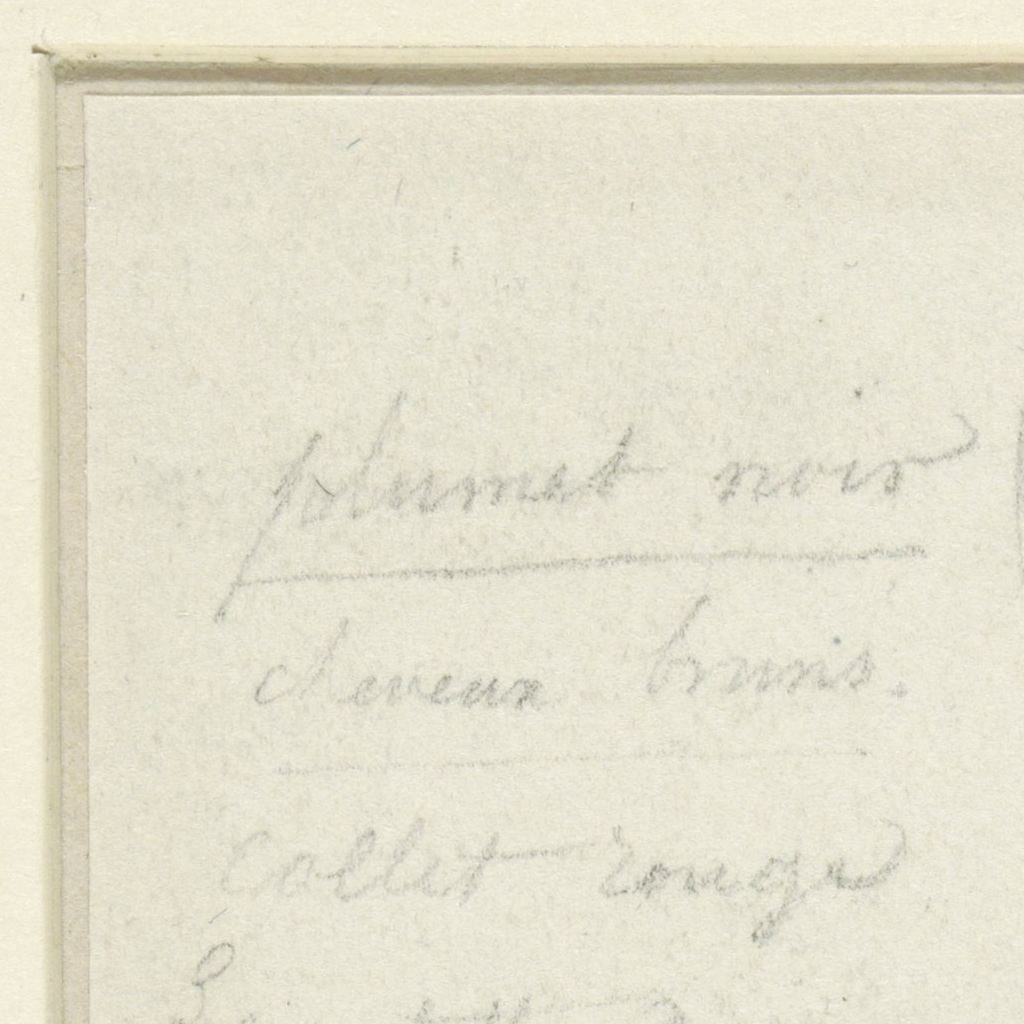 plumet noir
cheveux bruns.
collet rouge